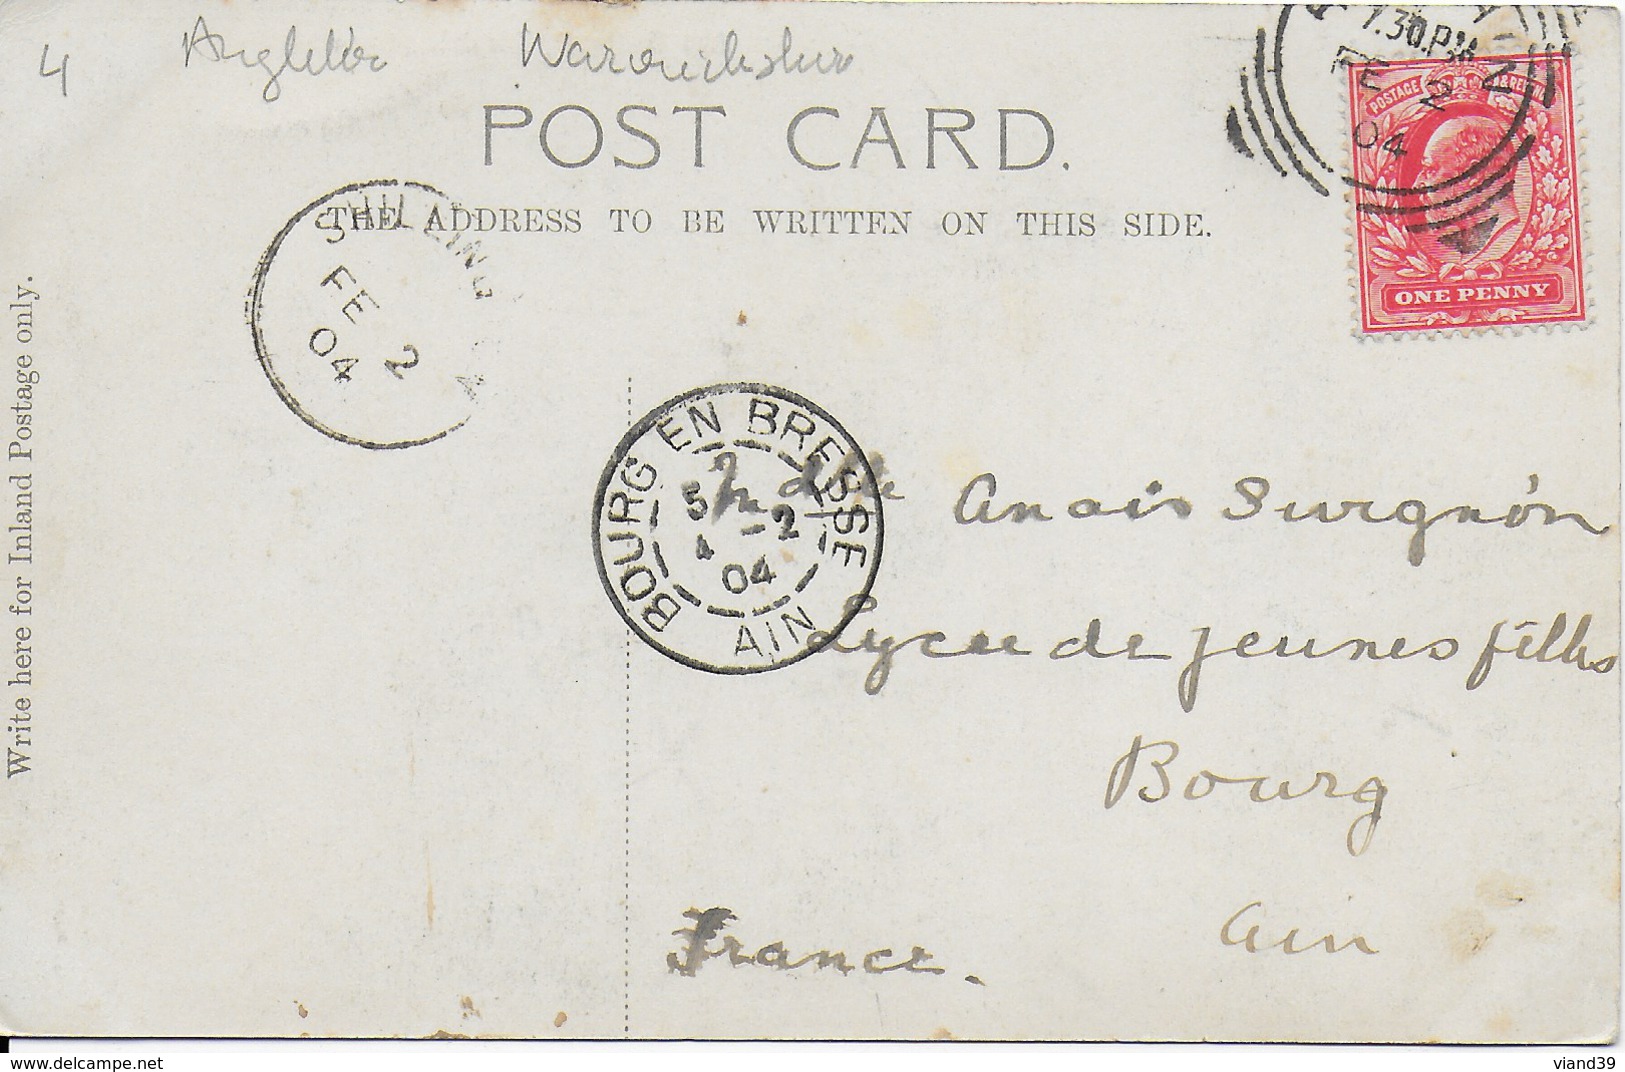 4 Angleterre Warwickshire
7.30.PM
FE 2
04
POSTAGE & REVENUE
ONE PENNY
POST CARD.
THE ADDRESS TO BE WRITTEN ON THIS SIDE.
SHILLING
FE 2
04
Write here for Inland Postage only.
BOURG EN BRESSE
5
4 -2
04
AIN
Mdlle Anais Surgnon
Lycee de jeunes filles
Bourg
Ain
France.
delcampe.net
viand39